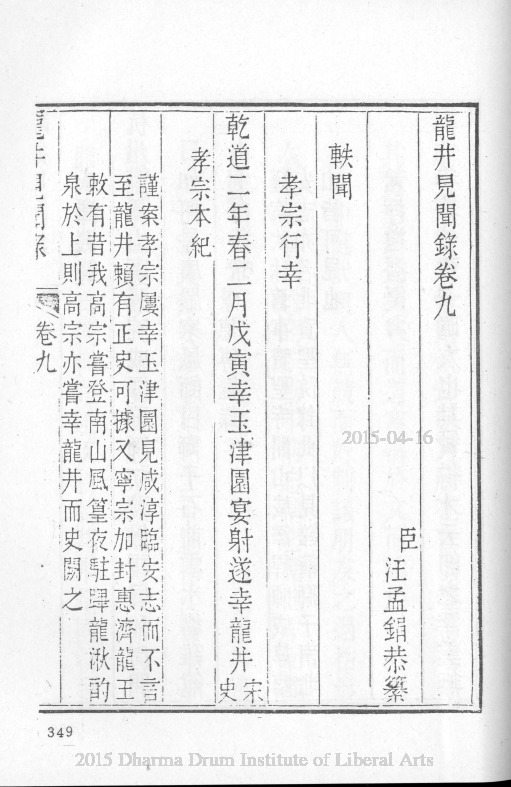 龍井見聞錄卷九
臣汪孟鋗恭纂
軼聞
孝宗行幸
乾道二年春二月戊寅幸玉津園宴射遂幸龍井宋史
孝宗本紀
謹案孝宗屢幸玉津園見咸淳臨安志而不言
至龍井賴有正史可據又寧宗加封惠濟龍王
敕有昔我高宗嘗登南山風篁夜駐蹕龍湫酌
泉於上則高宗亦嘗幸龍井而史闕之
龍井見聞錄 卷九
349
2015-04-16
2015 Dharma Drum Institute of Liberal Arts